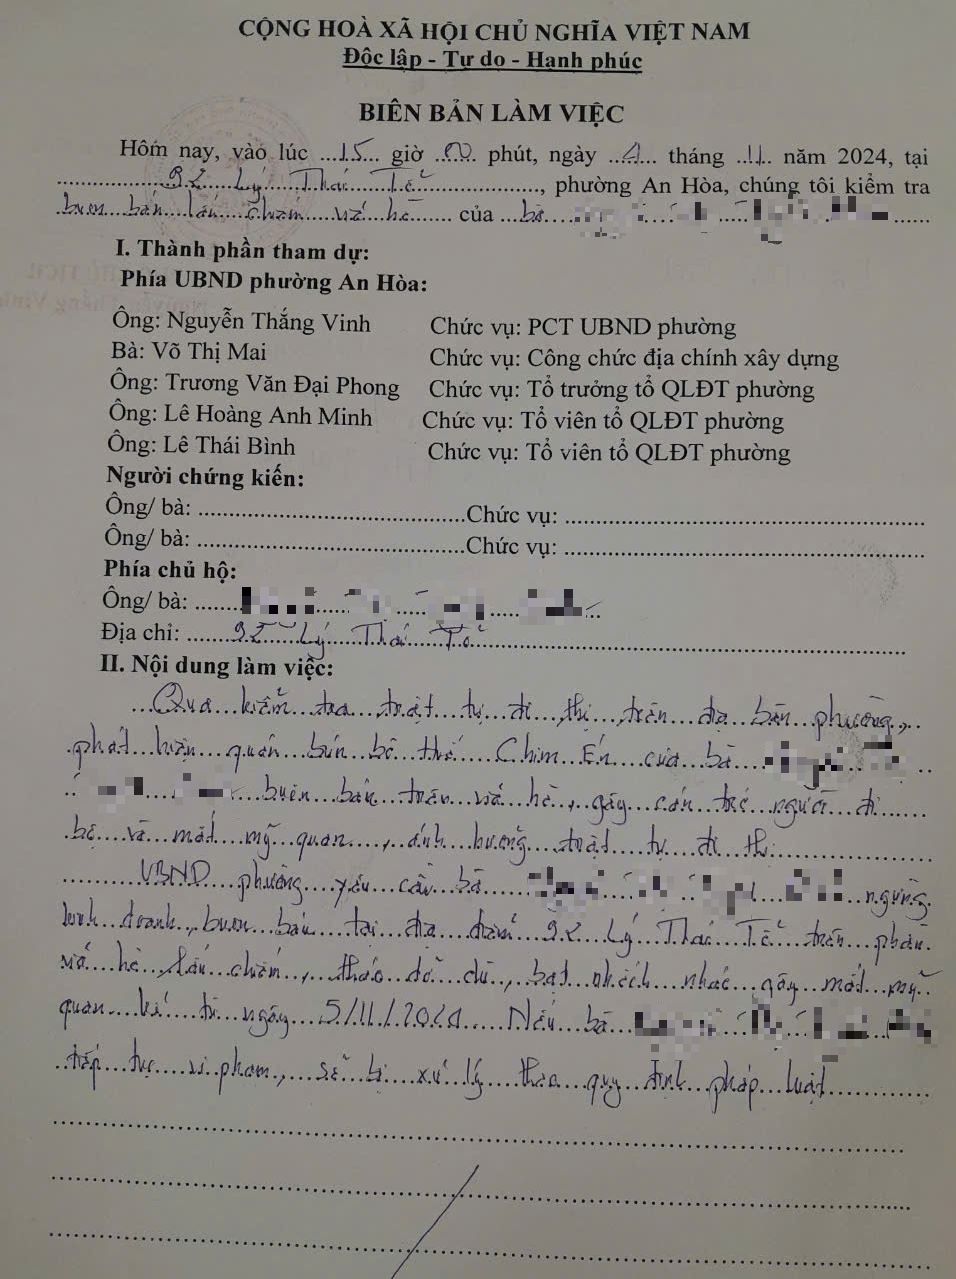 CỘNG HOÀ XÃ HỘI CHỦ NGHĨA VIỆT NAM
Độc lập - Tự do - Hạnh phúc
BIÊN BẢN LÀM VIỆC
Hôm nay, vào lúc ...15... giờ ..00.. phút, ngày ..4... tháng ..11.. năm 2024, tại
...32 Lý Thái Tổ..., phường An Hòa, chúng tôi kiểm tra
buôn bán lấn chiếm vỉa hè... của ...bà...
I. Thành phần tham dự:
Phía UBND phường An Hòa:
Ông: Nguyễn Thắng Vinh Chức vụ: PCT UBND phường
Bà: Võ Thị Mai Chức vụ: Công chức địa chính xây dựng
Ông: Trương Văn Đại Phong Chức vụ: Tổ trưởng tổ QLĐT phường
Ông: Lê Hoàng Anh Minh Chức vụ: Tổ viên tổ QLĐT phường
Ông: Lê Thái Bình Chức vụ: Tổ viên tổ QLĐT phường
Người chứng kiến:
Ông/ bà: ...Chức vụ: ...
Ông/ bà: ...Chức vụ: ...
Phía chủ hộ:
Ông/ bà: ...
Địa chỉ: ...32 Lý Thái Tổ...
II. Nội dung làm việc:
Qua kiểm tra trật tự đô thị trên địa bàn phường,
phát hiện quán bún bê thế Chim Én của bà
buôn bán trên vỉa hè, gây cản trở người đi
bộ và mất mỹ quan, ảnh hưởng trật tự đô thị.
UBND phường yêu cầu bà ngừng
kinh doanh, buôn bán tại địa điểm 32 Lý Thái Tổ trên phần
vỉa hè, lấn chiếm, tháo dỡ dù, bạt nhếch nhác gây mất mỹ
quan kể từ ngày 5/11/2024. Nếu bà
tiếp tục vi phạm, sẽ bị xử lý theo quy định pháp luật